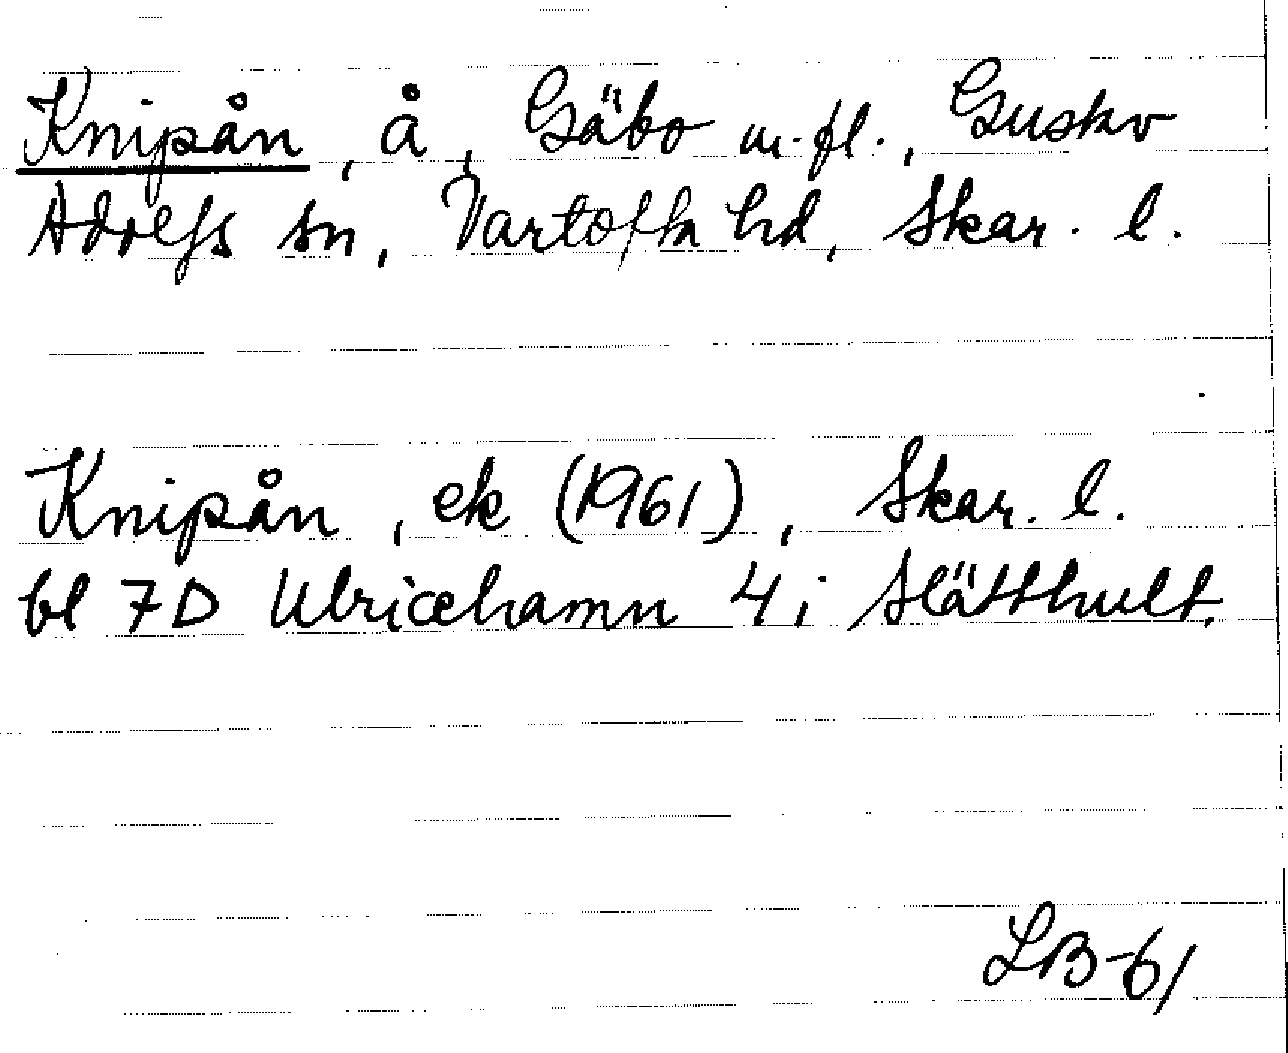 Knipån, å, Gäbo m.fl., Gustav
Adolfs sn, Vartofta hd, Skar. l.
Knipån, ek (1961), Skar. l.
bl 7D Ulricehamn 4i Slätthult.
LB-61